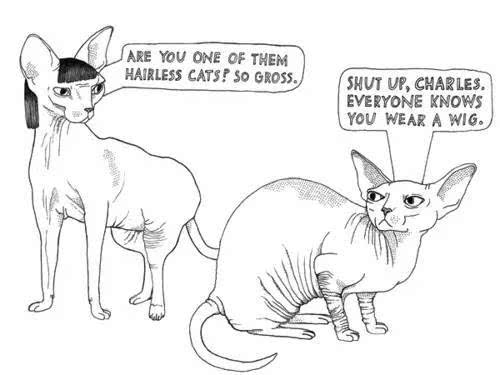 ARE YOU ONE OF THEM
HAIRLESS CATS? SO GROSS.
SHUT UP, CHARLES.
EVERYONE KNOWS
YOU WEAR A WIG.